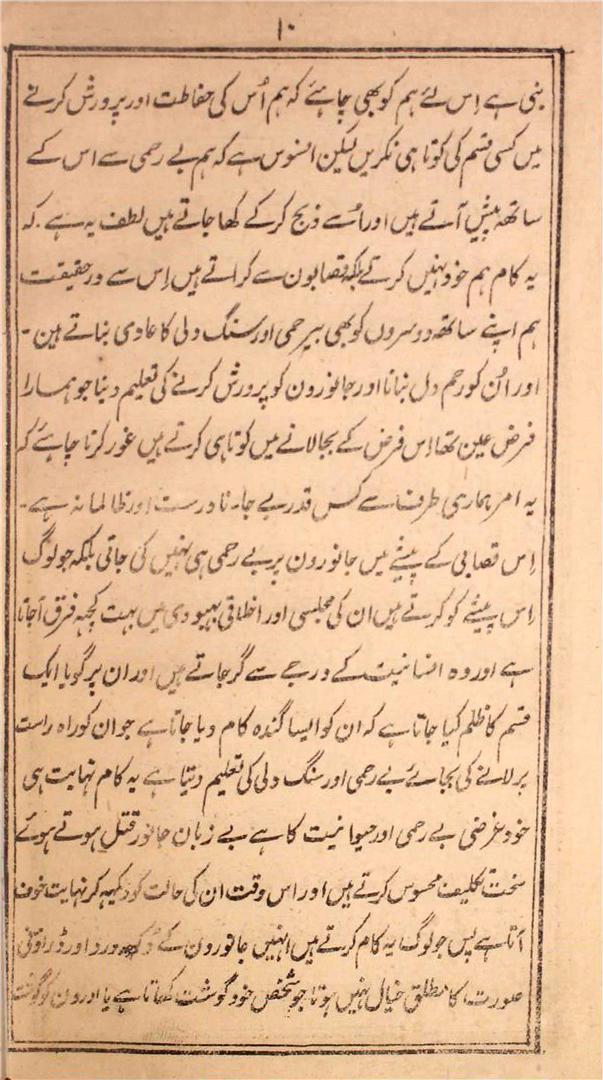 ۱۰
بنی ہے اِس لئے ہم کو بھی چاہئے کہ ہم اُس کی حفاظت اور پرورش کرنے
میں کسی قسم کی کوتاہی نکریں لیکن افسوس ہے کہ ہم بے رحمی سے اس کے
ساتھ پیش آتے ہیں اور اُسے ذبح کرکے کھا جاتے ہیں لطف یہ ہے کہ
یہ کام ہم خود نہیں کرتے بلکہ قصابون سے کراتے ہیں اِس سے درحقیقت
ہم اپنے ساتھ دوسروں کو بھی بیرحمی اور سنگ دلی کا عادی بناتے ہین ۔
اور اُن کو رحم دل بنانا اور جانورون کو پرورش کرنے کی تعلیم دینا جو ہمارا
فرض عین تھا اِس فرض کے بجالانے میں کوتاہی کرتے ہیں غور کرنا چاہئے کہ
یہ امر ہماری طرف سے کس قدر بے جا۔ نادرست اور ظالمانہ ہے ۔
اِس قصابی کے پیشے میں جانورون پر بے رحمی ہی نہیں کی جاتی بلکہ جو لوگ
اِس پیشے کو کرتے ہیں ان کی مجلسی اور اخلاقی بہبودی میں بہت کچہہ فرق آجاتا
ہے اور وہ انسانیت کے درجے سے گر جاتے ہیں اور ان پر گویا ایک
قسم کا ظلم کیا جاتا ہے کہ ان کو ایسا گندہ کام دیا جاتا ہے جو ان کو راہ راست
پر لانے کی بجائے بے رحمی اور سنگ دلی کی تعلیم دیتا ہے یہ کام نہایت ہی
خود غرضی بے رحمی اور حیوانیت کا ہے بے زبان جانور قتل ہوتے ہوئے
سخت تکلیف محسوس کرتے ہیں اور اس وقت ان کی حالت کو دیکھہ کر نہایت خوف
آتا ہے پس جو لوگ یہ کام کرتے ہیں انہیں جانورون کے دُکھہ درد اور ڈراونی
صورت کا مطلق خیال نہیں ہوتا جو شخص خود گوشت کھاتا ہے یا اورون کو گوشت